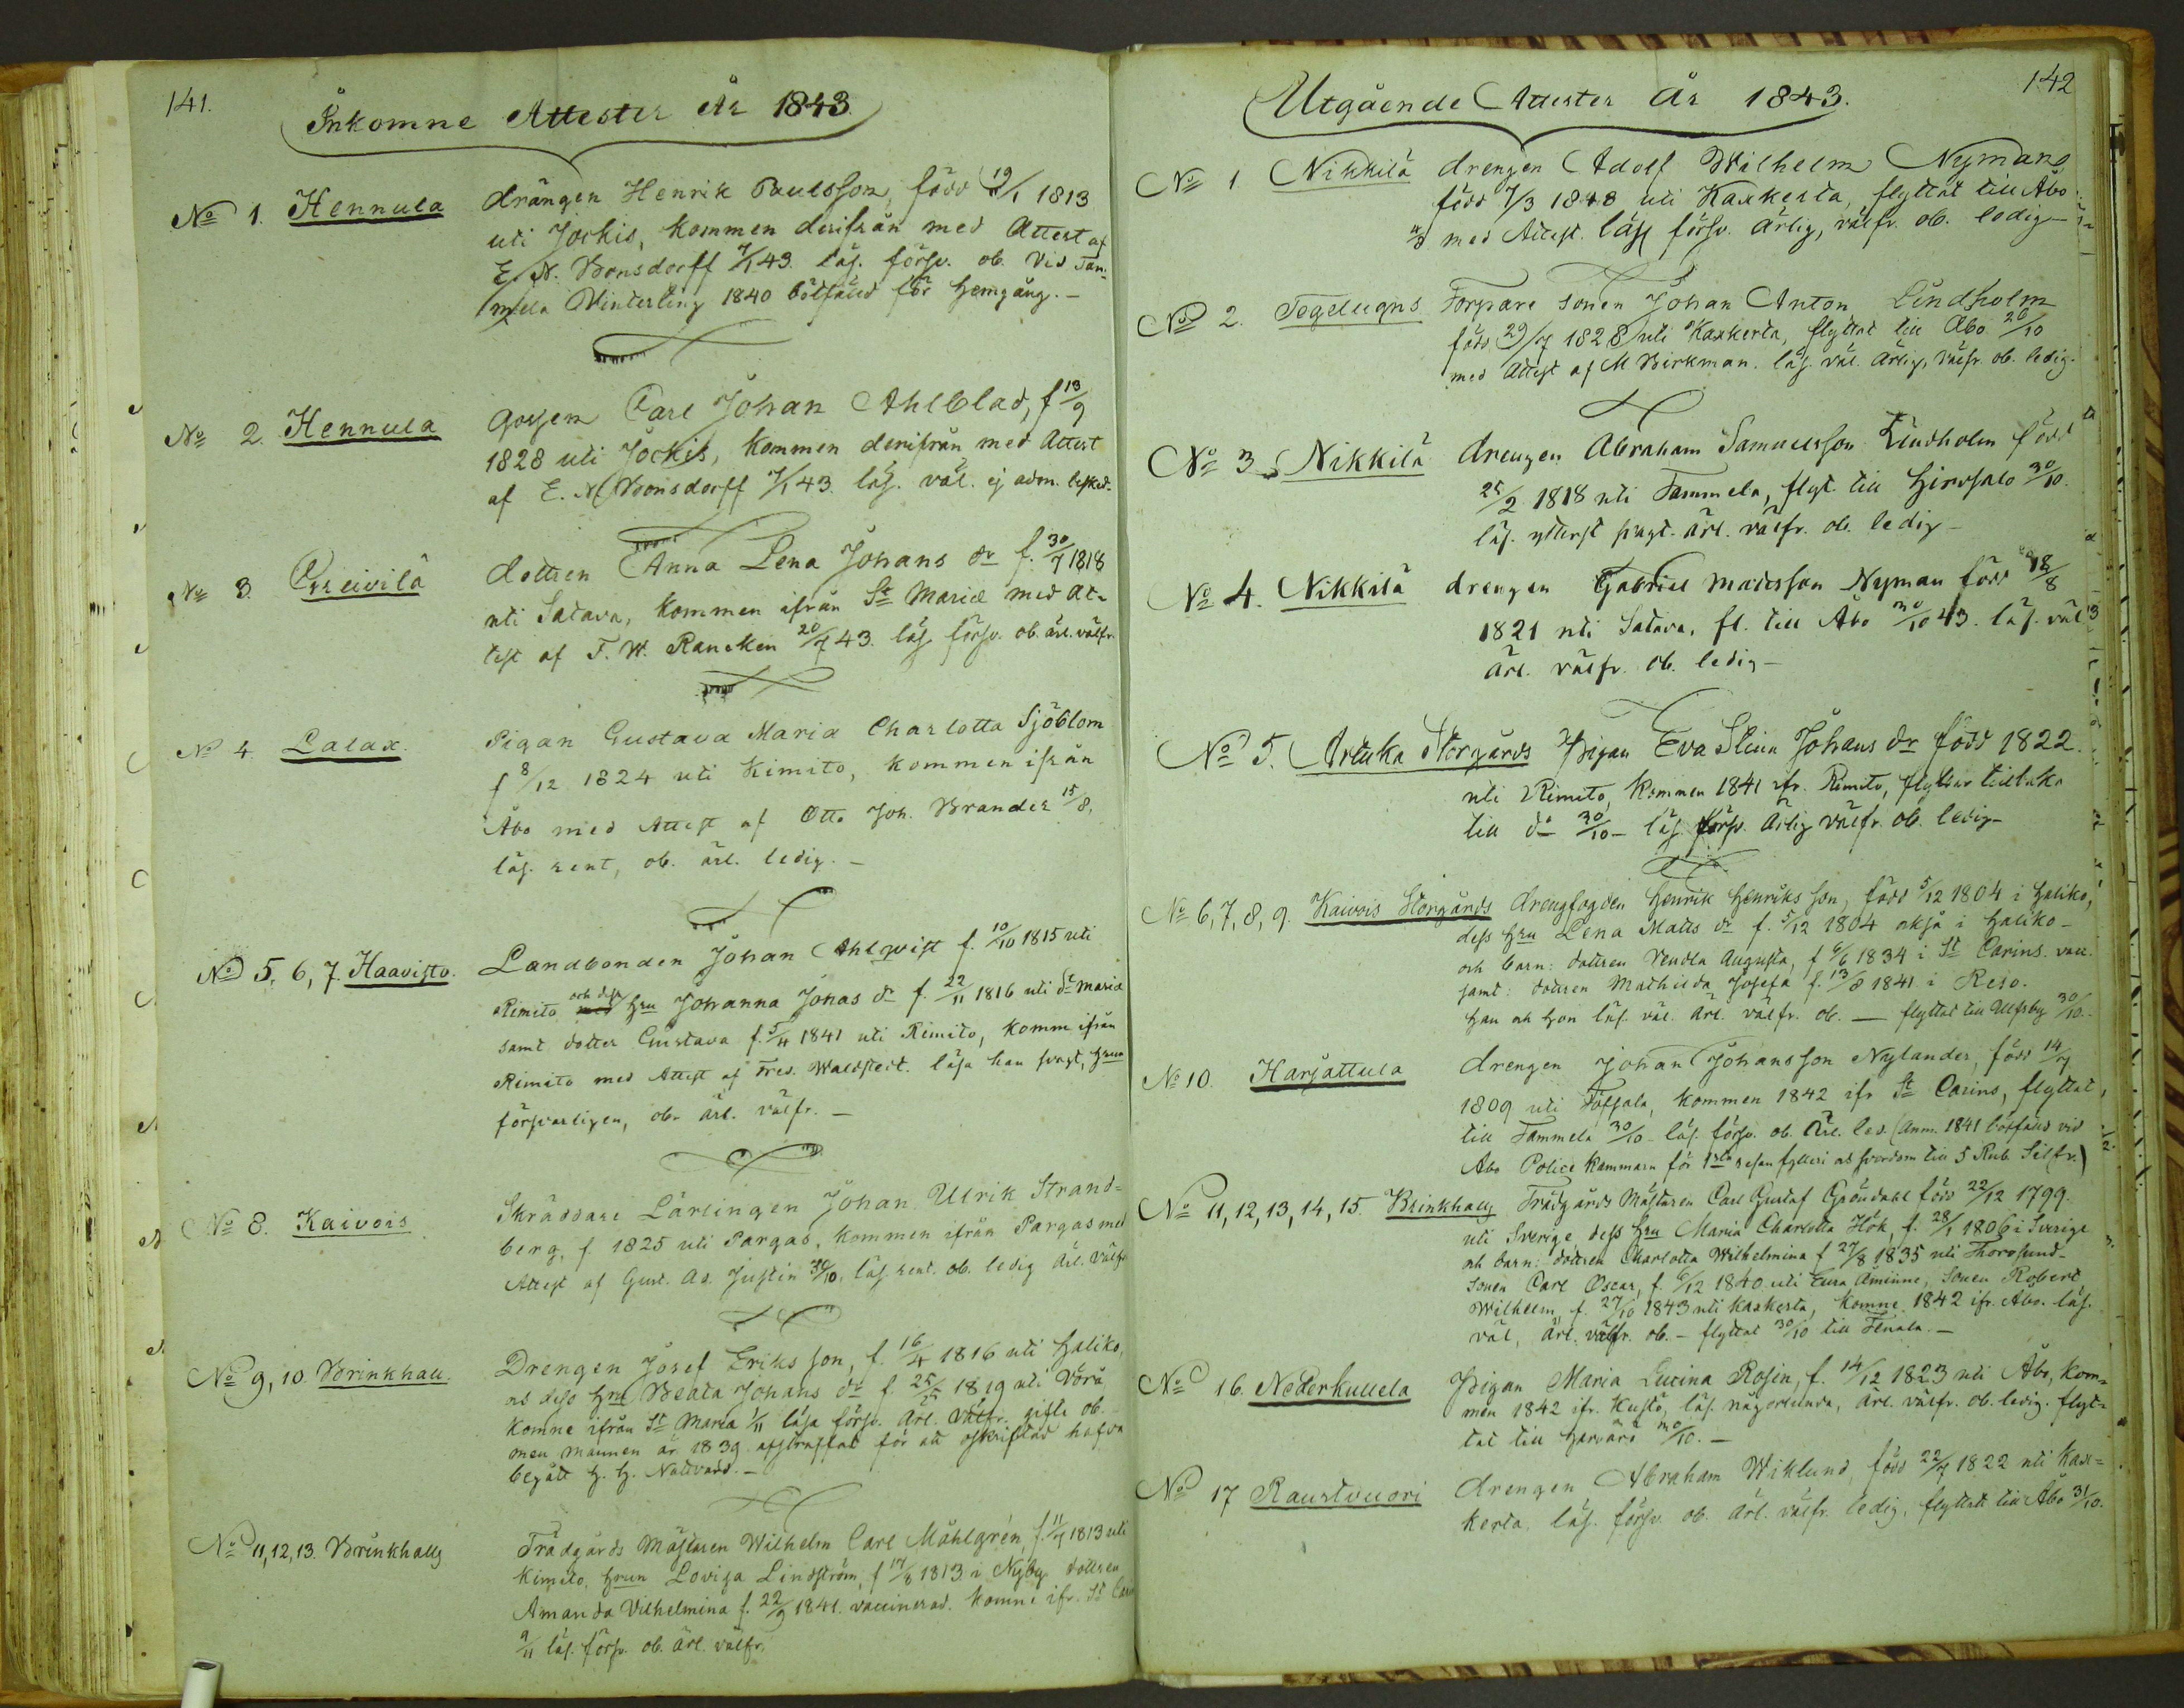 141.
Inkomne Attester År 1843
No 1. Hennula drängen Henrik Paulsson, född 19/1 1813
uti Jockis, kommen derifrån med Attest af
E. N. Bonsdorff 7/1 43. läs. försv. ob. Vid Tam-
mela Vinterting 1840 bötfäld för hemgång. –
No 2. Hennula gossen Carl Johan Ahlblad, f 13/9
1828 uti Jockis, kommen derifrån med Attest
af E. N. Bonsdorff 7/1 43. läs. väl. ej adm.
No 3. dottren Anna Lena Johans dr f. 30/7 1818
uti Satava, kommen ifrån St Mariæ med At-
test af F. W. Rancken 20/7 43. läs. försv. ob. ärl. välfr.
No 4 Lalax. Pigan Gustava Maria Charlotta Sjöblom
f 8/12 1824 uti Kimito, kommen ifrån
Åbo med Attest af Otto Joh. Brander 15/8,
läs. rent, ob. ärl. ledig. –
No 5, 6, 7. Haavisto. Landbonden Johan Ahlqvist f. 10/10 1815 uti
Rimito och dess hru Johanna Jonas dr f. 22/11 1816 uti St Mariæ
samt dotter Gustava f. 5/4 1841 uti Rimito, komm ifrån
Rimito med Attest af Fred. Waldstedt. läsa han svagt, hrun
försvarligen, ob. ärl. välfr. –
No 8. Kaivois Skräddare Lärlingen Johan Ulrik Strand-
berg, f. 1825 uti Pargas, kommen ifrån Pargas med
Attest af Gust. Ad. Justin 30/10, läs. rent. ob. ledig ärl. välfr
No 9, 10. Brinkhall. Drengen Josef Eriks son, f. 16/4 1816 uti Haliko,
och dess hru Beata Johans dr f. 25/5 1819 uti Vörå
komne ifrån St Maria 1/11 läsa försv. ärl. välfr. gifte ob.
men mannen år 1839 afstraffad för att oskriftad hafva
begått H. H. Nattvard. –
No 11, 12, 13. Brinkhall Trädgårds Mästaren Wilhelm Carl Måhlgrén, f. 11/4 1813 uti
Kimito. hrun Lovisa Lindström, f 17/8 1813 i Nyby dottren
Amanda Vilhelmina f. 22/9 1841. vaccinerad. komne ifr. St
9/11 läs. försv. ob. ärl. välfr.
142
Utgående Attester År 1843.
No 1 Nikkilä drengen Adolf Wilhelm Nyman
född 7/3 18 uti Kaxkerta, flyttat till Åbo
med Attest. läs försv. ärlig, välfr. ob. ledig –
No 2. Torpare sonen Johan Anton Lindholm
född 29/7 1828 uti Kaxkerta, flyttat till Åbo 26/10
med Attest af M Birkman. läs. väl. ärlig, välfr. ob. ledig.
No 3. Nikkilä drengen Abraham Samuelsson Lindholm född
25/2 1818 uti Tammela, flyt. till Hirvsalo 30/10.
läs. ytterst svagt. ärl. välfr. ob. ledig –
No 4. Nikkilä drengen Gabriel Matsson Nyman född 18/8
1821 uti Satava, fl. till Åbo 30/10 43. läs. väl
ärl. välfr. ob. ledig –
No 5. Artuka Storgårds Pigan Eva Stina Johans dr född 1822.
uti Rimito, kommen 1841 ifr. Rimito, flyttar tillbaka
till do 30/10 – läs. försv. ärlig välfr. ob. ledig –
No 6, 7, 8, 9. Kaivois Storgårds drengfogden Henrik Henriks son, född 5/12 1804 i Haliko,
dess hru Lena Matts dr f. 5/12 1804 också i Haliko –
och barn: dottren Vendla Augusta, f 6/6 1834 i St Carins. vacc.
samt: dottren Mathilda Josefa f. 13/8 1841 i Reso.
han och hon läs. väl. ärl. välfr. ob. — flyttat till Ulfsby 30/10.
No 10. Harjattula drengen Johan Johansson Nylander, född 14/7
1809 uti Töfsala, kommen 1842 ifr St Carins, flyttat
till Tammela 30/10 – läs. försv. ob. ärl. led. (Anm. 1841 bötfäld vid
Åbo Police Kammare för 1sta resan fylleri och svordom till 5 Rub. Silfv.)
No 11, 12, 13, 14, 15. Brinkhall Trädgårds Mästaren Carl Gustaf Gröndahl född 22/12 1799.
uti Sverige dess hru Maria Charlotta Hök, f. 28/1 1806 i Sverige
och barn: dottren Charlotta Wilhelmina f 27/8 1835 uti Thorsund –
sonen Carl Oscar, f. 6/12 1840 uti Eura Åminne, sonen Robert
Wilhelm f. 27/10 1843 uti Kaxkerta, komne 1842 ifr. Åbo. läs.
väl, ärl. välfr. ob. – flyttat 30/10 till Tenala. –
No 16. Nederkullela Pigan Maria Lucina Rosin, f. 14/12 1823 uti Åbo, kom-
men 1842 ifr. Kustö, läs. någorlunda, ärl. välfr. ob. ledig. flyt-
tat till 30/10. –
No 17 Raustvuori drengen Abraham Wiklund, född 22/7 1822 uti Kax-
kerta, läs. försv. ob. ärl. välfr. ledig, flyttat till Åbo 31/10.